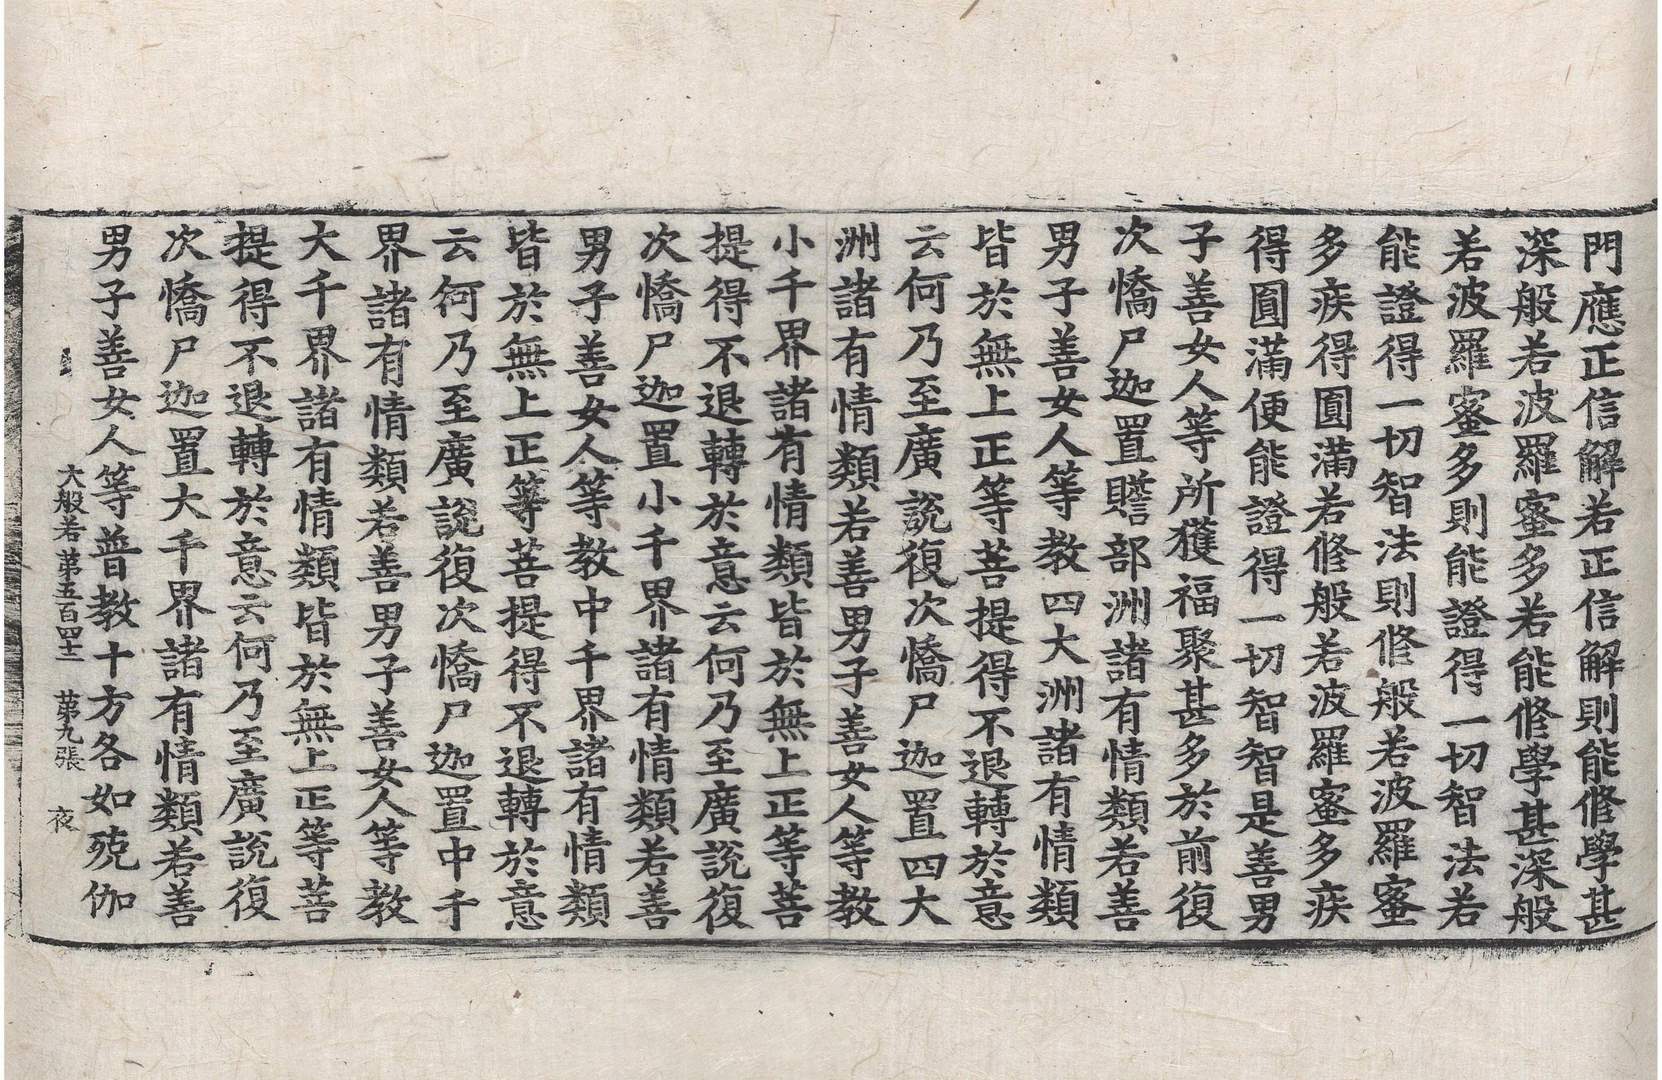 門應正信解若正信解則能修學甚
深般若波羅蜜多若能修學甚深般
若波羅蜜多則能證得一切智法若
能證得一切智法則修般若波羅蜜
多疾得圓滿若修般若波羅蜜多疾
得圓滿便能證得一切智智是善男
子善女人等所獲福聚甚多於前復
次憍尸迦置贍部洲諸有情類若善
男子善女人等教四大洲諸有情類
皆於無上正等菩提得不退轉於意
云何乃至廣說復次憍尸迦置四大
洲諸有情類若善男子善女人等教
小千界諸有情類皆於無上正等菩
提得不退轉於意云何乃至廣說復
次憍尸迦置小千界諸有情類若善
男子善女人等教中千界諸有情類
皆於無上正等菩提得不退轉於意
云何乃至廣說復次憍尸迦置中千
界諸有情類若善男子善女人等教
大千界諸有情類皆於無上正等菩
提得不退轉於意云何乃至廣說復
次憍尸迦置大千界諸有情類若善
男子善女人等普教十方各如殑伽
大般若第五百四十二 第九張 夜